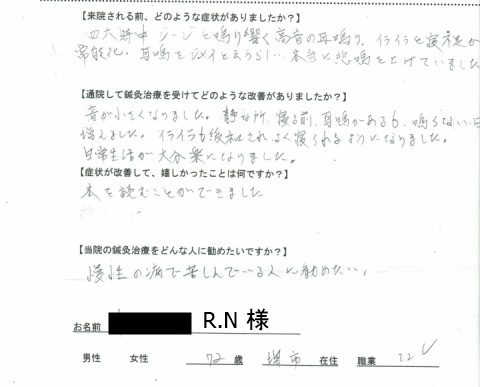 【来院される前、どのような症状がありましたか？】
四六時中ジージと鳴り響く高音の耳鳴り、イライラと寝不足が
常態化、耳鳴を 本当に悲鳴を上げていました
【通院して鍼灸治療を受けてどのような改善がありましたか？】
音が小さくなりました。静かな所、寝る前、耳鳴がある も、鳴らない日
増えました。イライラも緩和されよく寝られるようになりました。
日常生活が大分楽になりました。
【症状が改善して、嬉しかったことは何ですか？】
本を読むことができました
【当院の鍼灸治療をどんな人に勧めたいですか？】
慢性の病で苦しんでいる人に勧めたい。
お名前 R.N 様
男性 女性 72 歳 堺市 在住 職業